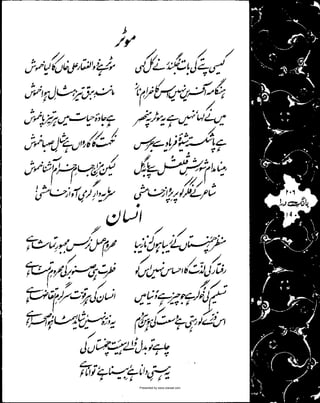 موٹر
کیسی پتے کی بات جگندر نے کل کہی موٹر ہے ذوالفقار علی خان کا کیا خموش
ہنگامہ آفریں نہیں اس کا خرامِ ناز مانندِ برق تیز، مثالِ ہوا خموش
میں نے کہا نہیں ہے یہ موٹر پہ منحصر ہے جادۂ حیات میں ہر تیزپا خموش
ہے پا شکستہ شیوۂ فریاد سے جرس نکہت کا کارواں ہے مثالِ صبا خموش
مینا مدام شورشِ قلقل سے پا بہ گل لیکن مزاجِ جامِ خرام آشنا خموش
شاعر کے فکر کو پرِ پرواز خامشی
سرمایہ دارِ گرمیِ آواز خامشی!
انسان
منظر چمنستاں کے زیبا ہوں کہ نازیبا محرومِ عمل نرگس مجبورِ تماشا ہے
رفتار کی لذت کا احساس نہیں اس کو فطرت ہی صنوبر کی محرومِ تمنا ہے
تسلیم کی خوگر ہے جو چیز ہے دنیا میں انسان کی ہر قوت سرگرمِ تقاضا ہے
اس ذرے کو رہتی ہے وسعت کی ہوس ہر دم یہ ذرہ نہیں، شاید سمٹا ہوا صحرا ہے
چاہے تو بدل ڈالے ہیئت چمنستاں کی
یہ ہستیِ دانا ہے، بینا ہے، توانا ہے
۲۰۶
بانگ درا